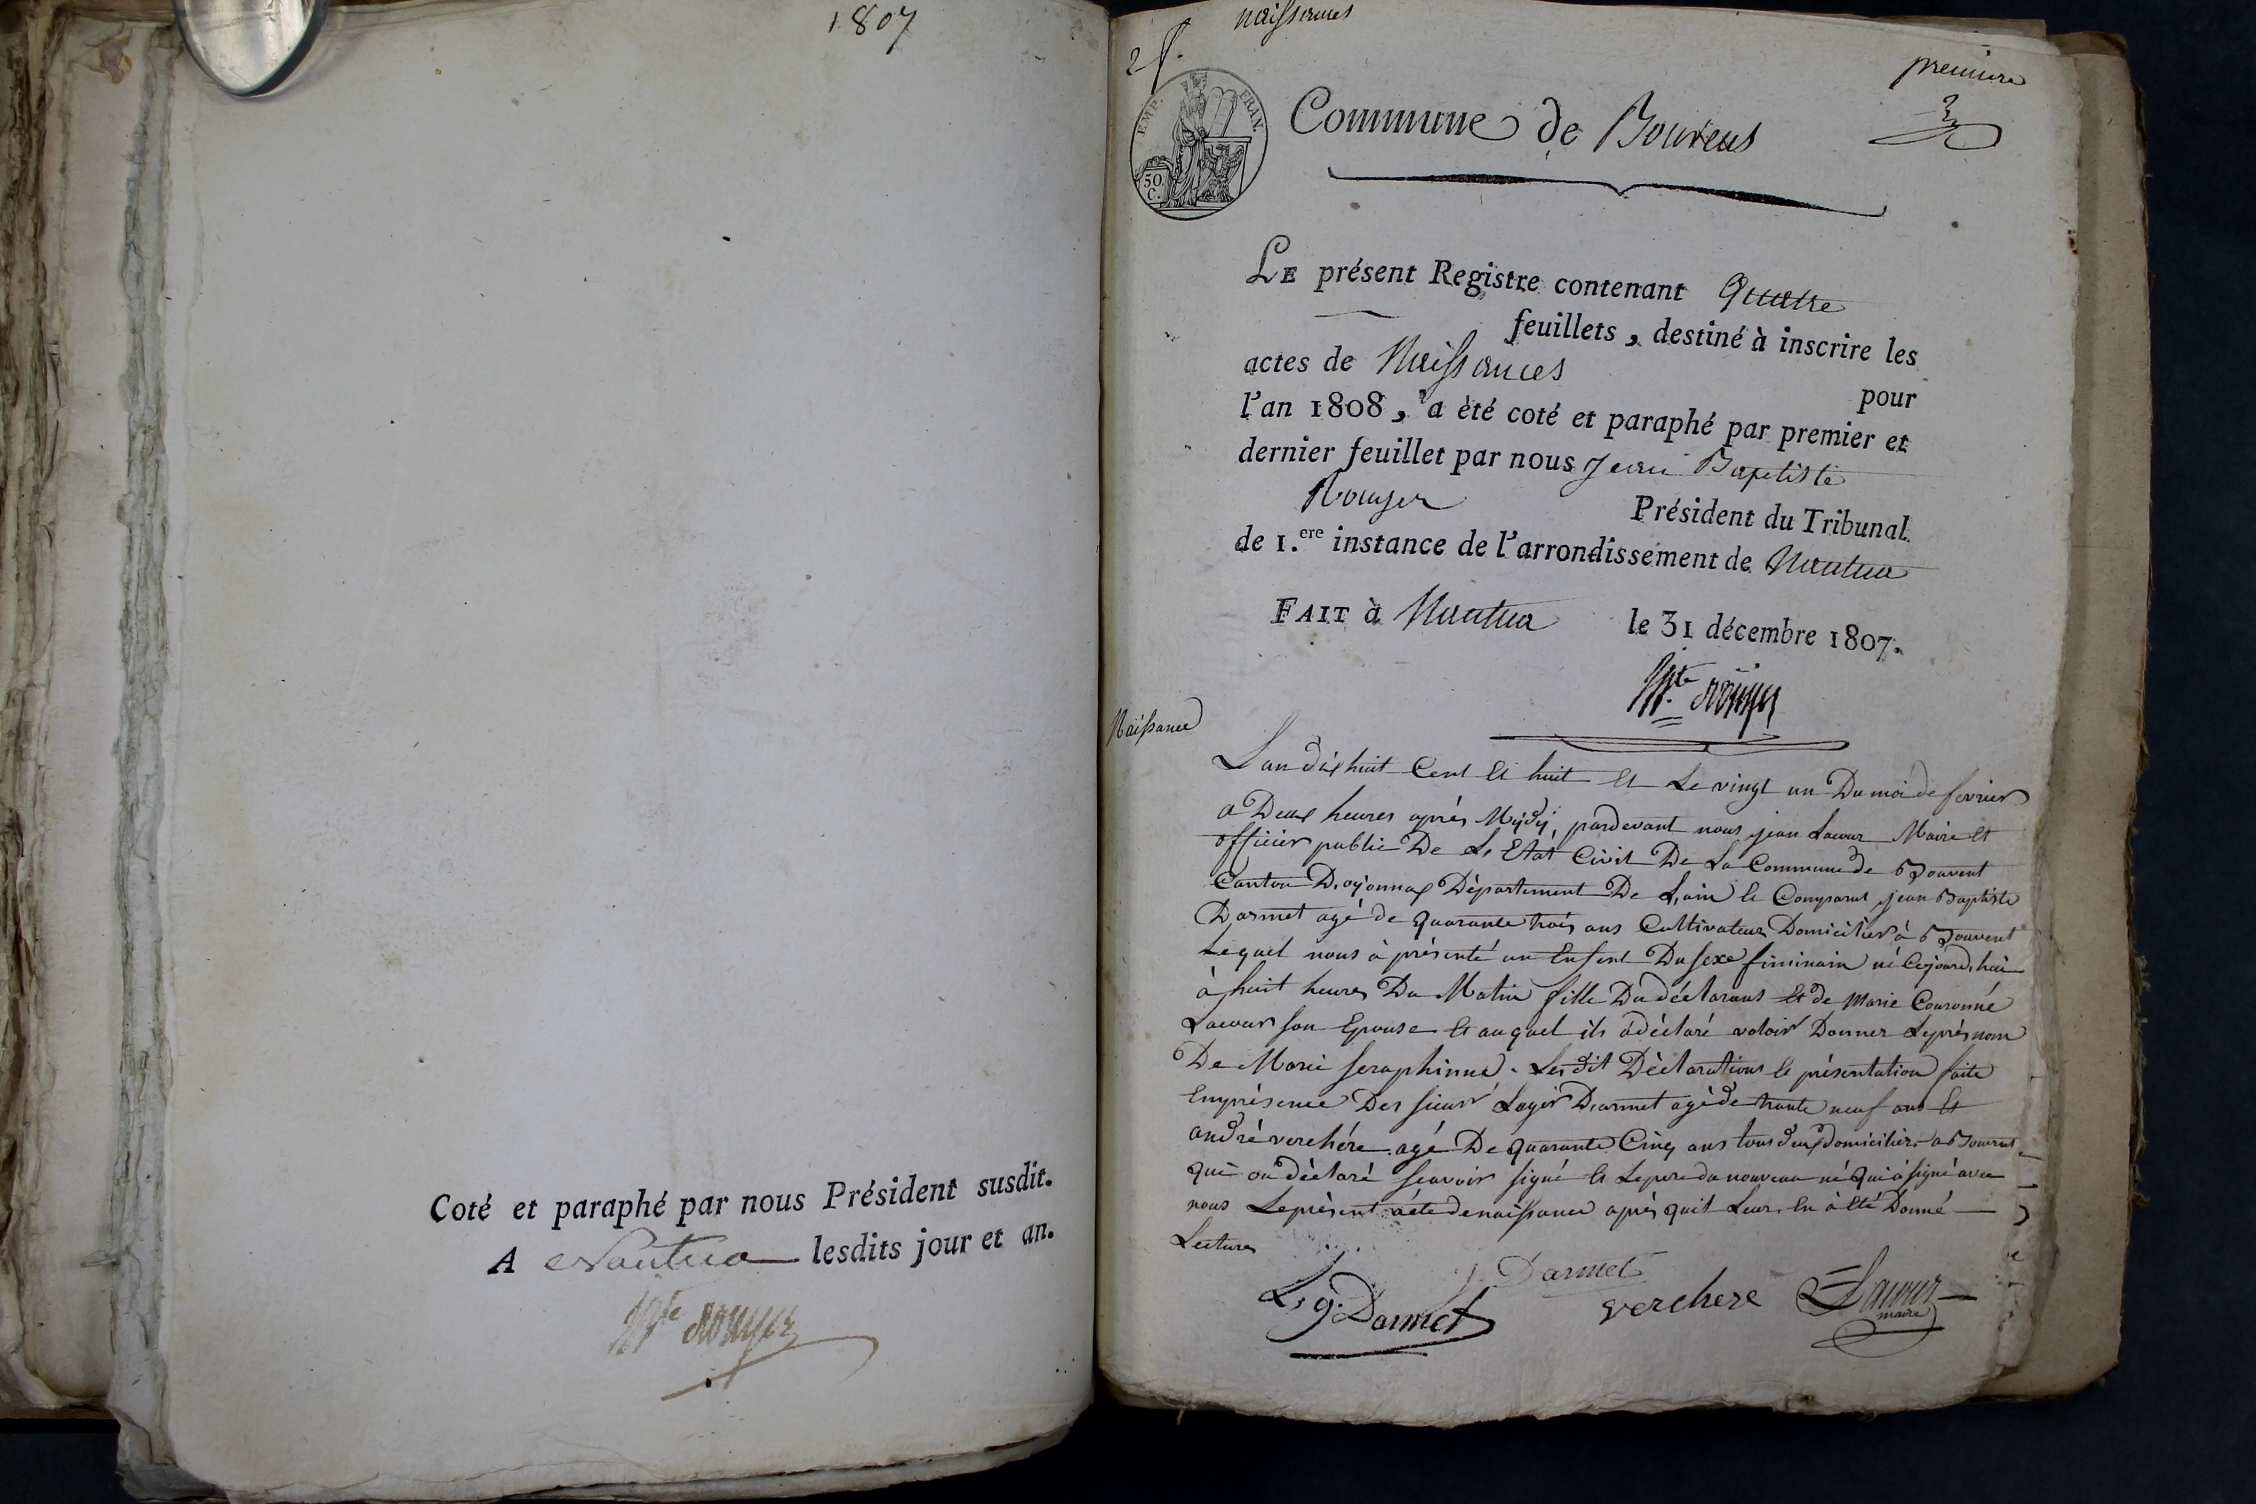 1807
Coté et paraphé par nous Président susdit.
A Nantua lesdits jour et an.
Bte Rouyer
naissances
premiere
EMP. FRAN.
50 C.
Commune de Bouvens
LE présent Registre contenant Quatre
feuillets, destiné à inscrire les
actes de Naissances pour
l'an 1808, a èté coté et paraphé par premier et
dernier feuillet par nous Jean Baptiste
Rouyer Président du Tribunal
de 1.ere instance de l'arrondissement de Nantua
FAIT à Nantua le 31 décembre 1807.
Bte Rouyer
Naissance
L an dix huit Cent Et huit Et Le vingt un Du moi de fevrier
a Deux heures après Mydy, pardevant nous jean Lacour Maire Et
officier public De L, Etat Civil De La Commune de Bouvent
Canton D, oyonnax Département De L, ain Et Comparut jean Baptiste
Darmet agé de quarante trois ans Cultivateur Domicilier à Bouvent
Lequel nous à présenté un Enfent Du sexe fiminain né Cejourd, hui
à huit heures Du Matin fille Du déclarant Et de Marie Couronné
Lacour son Epouse Et auquel ils à déclaré voloir Donner Leprésnom
De Marie Seraphinne. Lesdit Déclarations Et présentation faite
Enprésence Des sieur Loger Darmet agé de trante neuf ans Et
andré verchére agé De quarante Cinq ans tous deux domicilier a Bouvent
qui on déclaré scavoir signé Et Lepere du nouveau né Qui à signé avec
nous Leprèsent acte de naissance après quil Leur En à Eté Donné
Lecture
J. Darmet
L, g. Darmet verchere Lacour
maire